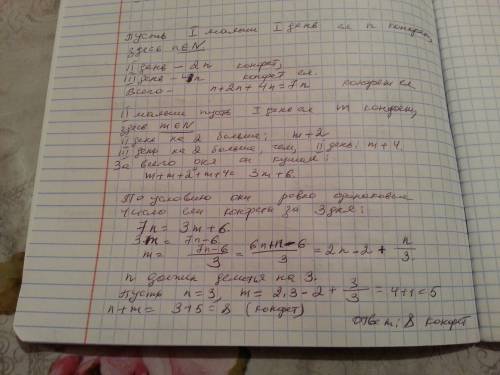 Пусть I малыш I день ел n конфет,
здесь n∈N
II день – 2n конфет,
III день – 4n конфет ел.
Всего – n+2n+4n=7n конфет ел
II малыш пусть I день ел m конфет,
здесь m∈N
II день на 2 больше: m+2
III день на 2 больше, чем II день: m+4.
За всего дня он кушал:
m+m+2+m+4= 3m+6.
По условию они ровно одинаковые
число ели конфета за 3 дня:
7n = 3m+6.
3m = 7n-6
m = 7n-6/3 = 6n+n-6/3 = 2n-2+ n/3.
n должен делиться на 3.
Пусть n=3, m= 2·3-2+ 3/3 = 4+1=5
n+m= 3+5=8 (конфет)
Ответ: 8 конфет